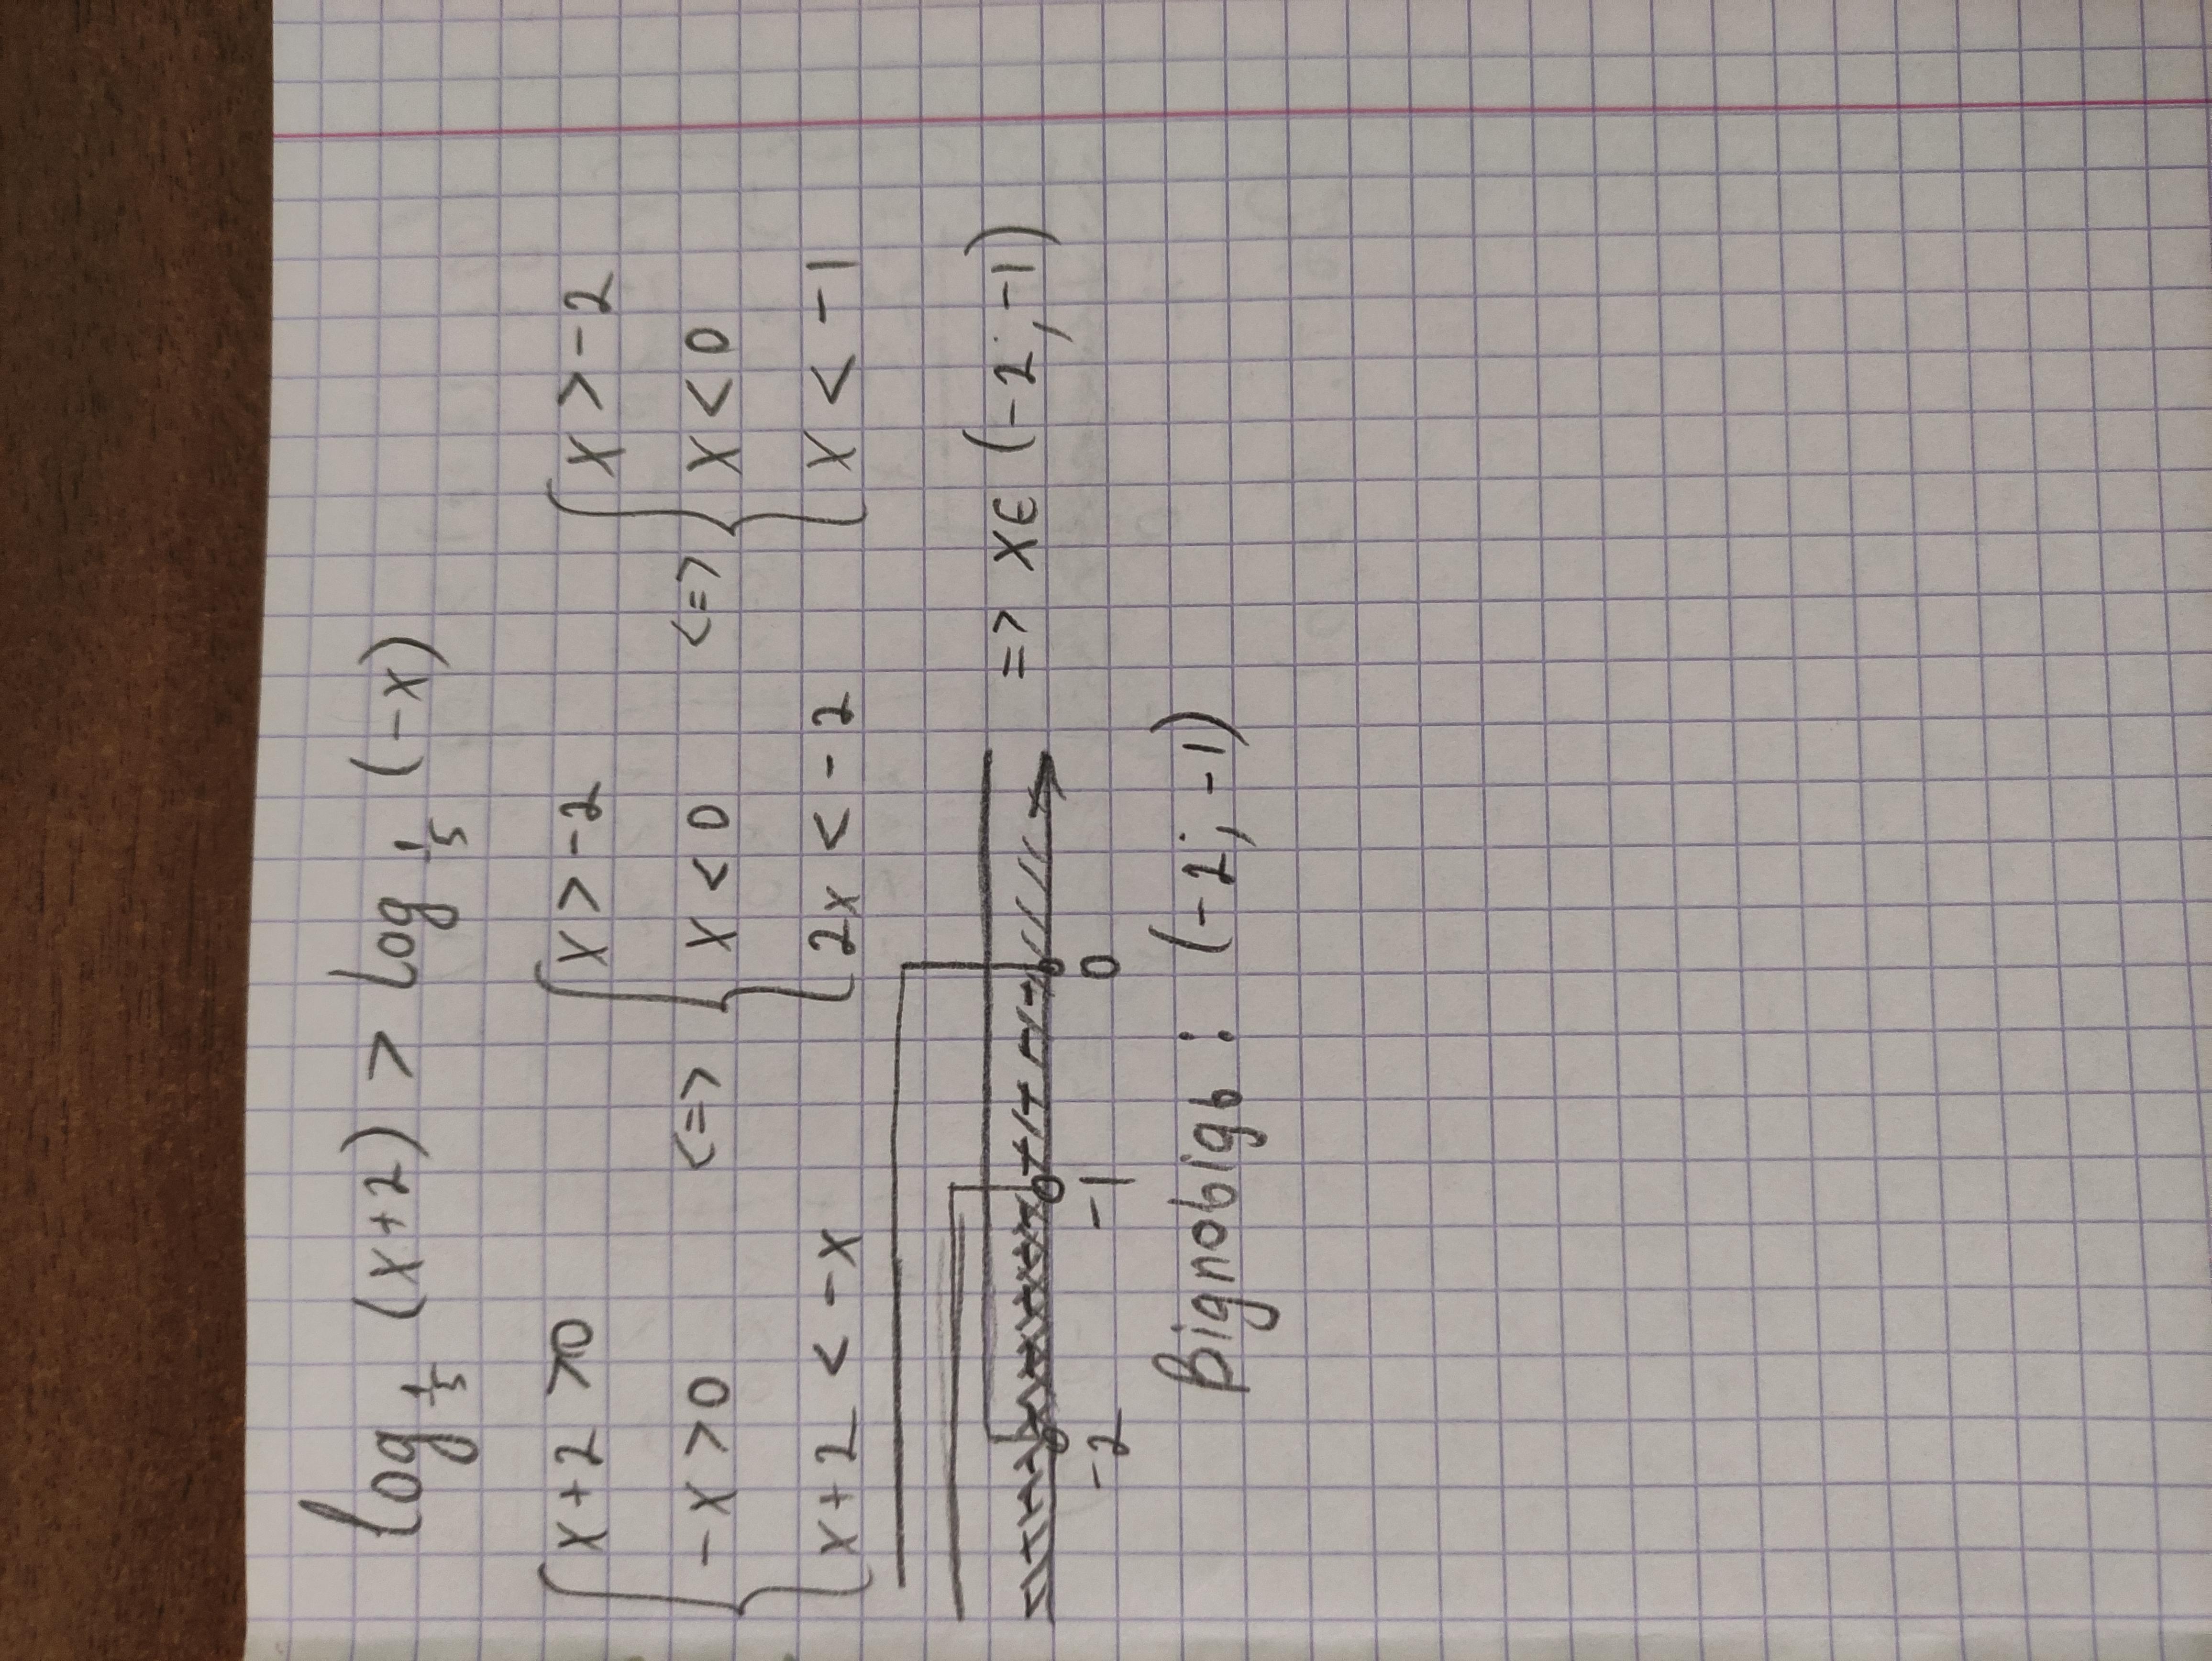 log 1/5 (x+2) > log 1/5 (-x)
{ x+2 > 0 { x > -2 { x > -2
{ -x > 0 <=> { x < 0 <=> { x < 0
{ x+2 < -x { 2x < -2 { x < -1
=> x ∈ (-2; -1)
-2 -1 0
Відповідь: (-2; -1)